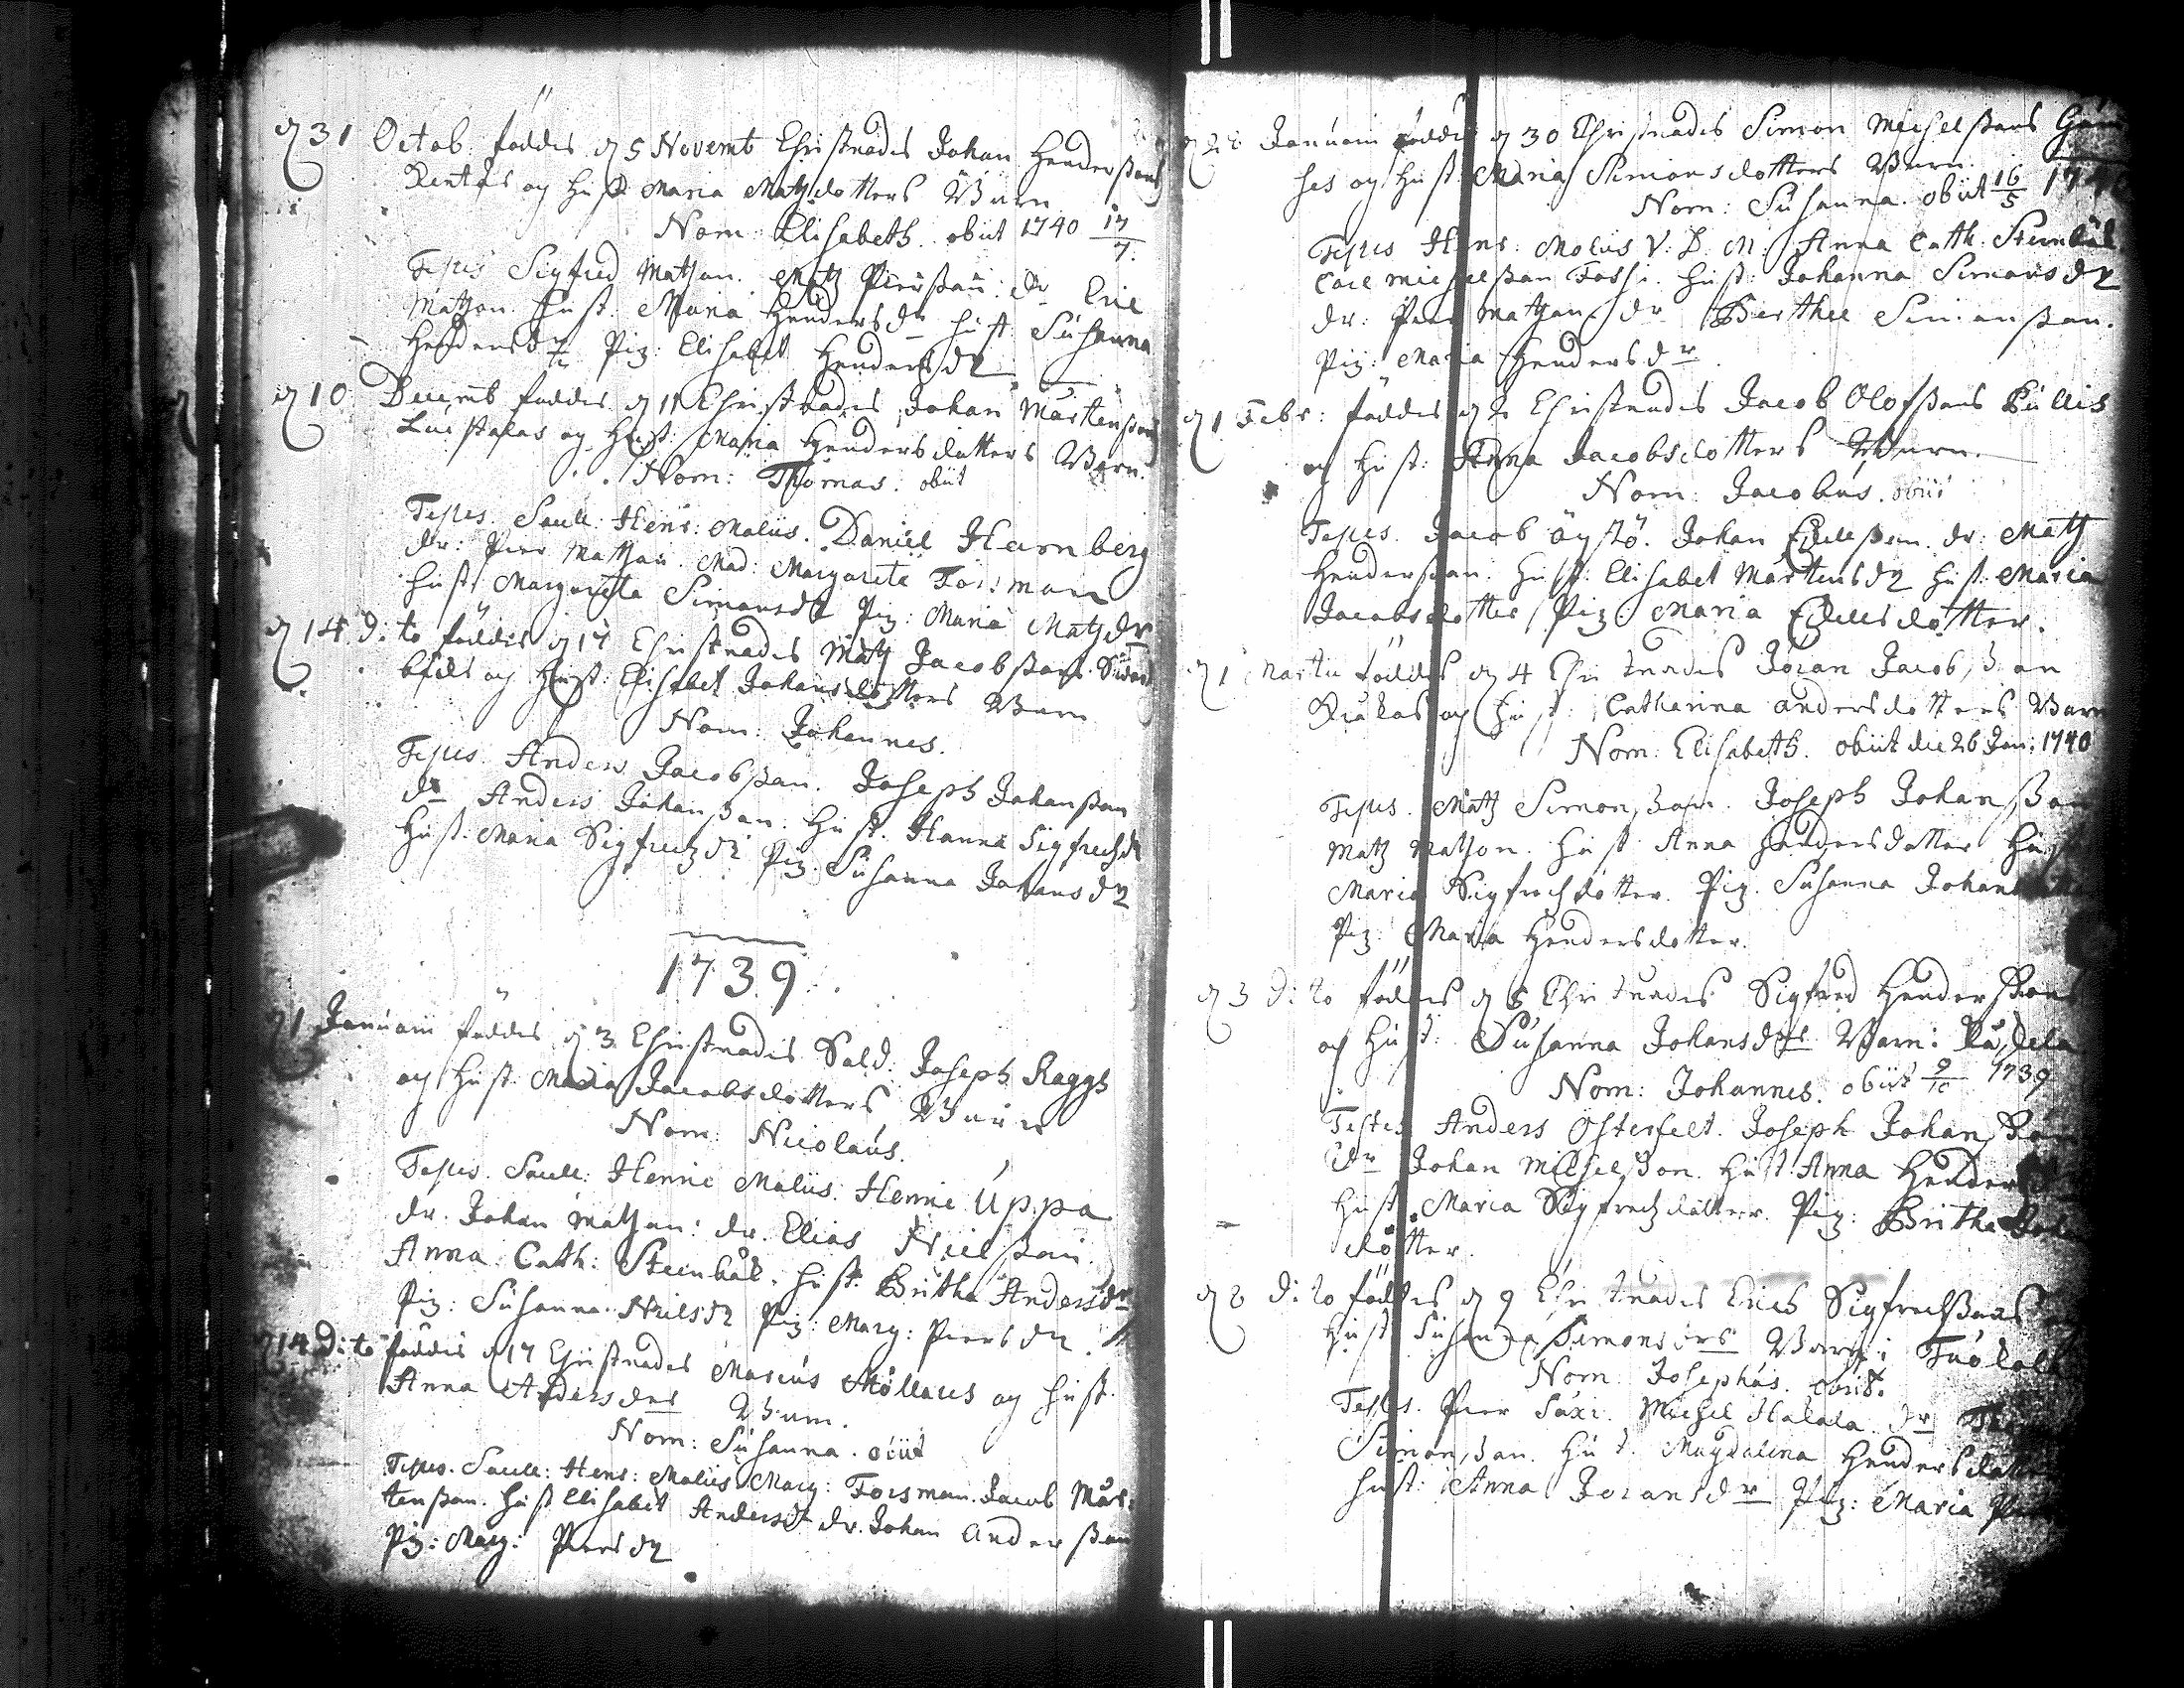 d 31 Octob. föddes d 5 Novemb Christnades Johan Henderssons
Rentas og Hust Maria Matzdotters Barn
Nom: Elisabeth. obiit 1740 17/7.
Testes Sigfred Matzon. Matz Piersson. dr Eric
Matzon. Hust. Maria Hendersdr Hust. Susanna
Hendersdr Pig: Elisabet Hendersdr
d 10 Decemb föddes d 11 Christnades Johan Mårtenssons
og Hust: Maria Hendersdotters Barn.
Nom: Thomas. obiit
Testes. Sacell: Henr: Moliis. Daniel Hamberg
dr: Pier Matzon. Mad: Margareta Forsman
Hust Margareta Simonsdr Pig: Maria Matzdr
d 14 D:to föddes d 17 Christnades Matz Jacobssons
og Hust: Elisabet Johansdotters Barn
Nom: Johannes.
Testes. Anders Jacobsson. Joseph Johansson
dr Anders Johansson. Hust. Hanna Sigfredsdr
Hust. Maria Sigfredzdr Pig. Susanna Johansdr
1739
d 1 Januarii föddes d 3 Christnades Sold: Joseph Raggs
og Hust. Maria Jacobsdotters Barn
Nom: Nicolaus.
Testes. Sacell: Henric Moliis. Henric Uppa
dr. Johan Matzon: dr. Elias Nielsson
Anna Cath: Steenbåk. Hust. Britha Andersdr
Pig: Susanna Nielsdr Pig: Marg: Piersdr
d 14 D:to föddes d 17 Christnades Marcus Möllares og Hust.
Anna Andersdrs Barn.
Nom: Susanna. obiit
Testes. Sacell: Henr: Moliis Marg: Forsman. Jacob Mår-
tensson. Hust Elisabet Andersdr dr. Johan Andersson
Pig: Marg: Piersdr
d 28 Januarii föddes d 30 Christnades Simon Michelssons
og Hust: Maria Simonsdotters Barn.
Nom: Susanna. obiit 16/5 1740
Testes Henr: Molius V. D. M. Anna Cath. Steenbåk
Carl Michelsson Fossi. Hust: Johanna Simonsdr
dr: Pier Matzon. dr Berthel Simonsson.
Pig: Maria Hendersdr
d 1 Febr: föddes d 2 Christnades Jacob Olofssons Pullis
og Hust: Anna Jacobsdotters Barn.
Nom: Jacobus. obiit
Testes. Jacob Öystö. Johan Eskelsson. dr: Matz
Hendersson. Hust: Elisabet Mårtensdr Hust: Maria
Jacobsdotter Pig Maria Eskelsdotter.
d 1 Martii föddes d 4 Christnades Jöran Jacobsson
og Hust: Catharina Andersdotters Barn
Nom: Elisabeth. obiit die 26 Jan: 1740
Testes. Matz Simonsson. Joseph Johansson
Matz Matzon. Hust Anna Hendersdotter Hust
Maria Sigfredsdotter. Pig. Susanna
Pig: Maria Hendersdotter.
d 3 D:to föddes d 5 Christnades Sigfred Hendersson
og Hust. Susanna Johansdrs Barn:
Nom: Johannes. obiit 9/10 1739
Testes Anders Österfelt. Joseph Johansson
dr Johan Michelsson. Hust. Anna
Hust. Maria Sigfredzdotter. Pig: Britha
dotter.
d 8 D:to föddes d 9 Christnades Erich Sigfredssons
Hust Susanna Simonsdrs Barn:
Nom Josephus. obiit.
Testes. Pier Saxi. Michel Hakala dr
Simonsson. Hust. Magdalena Hendersdotter
Hust: Anna Joransdr Pig: Maria